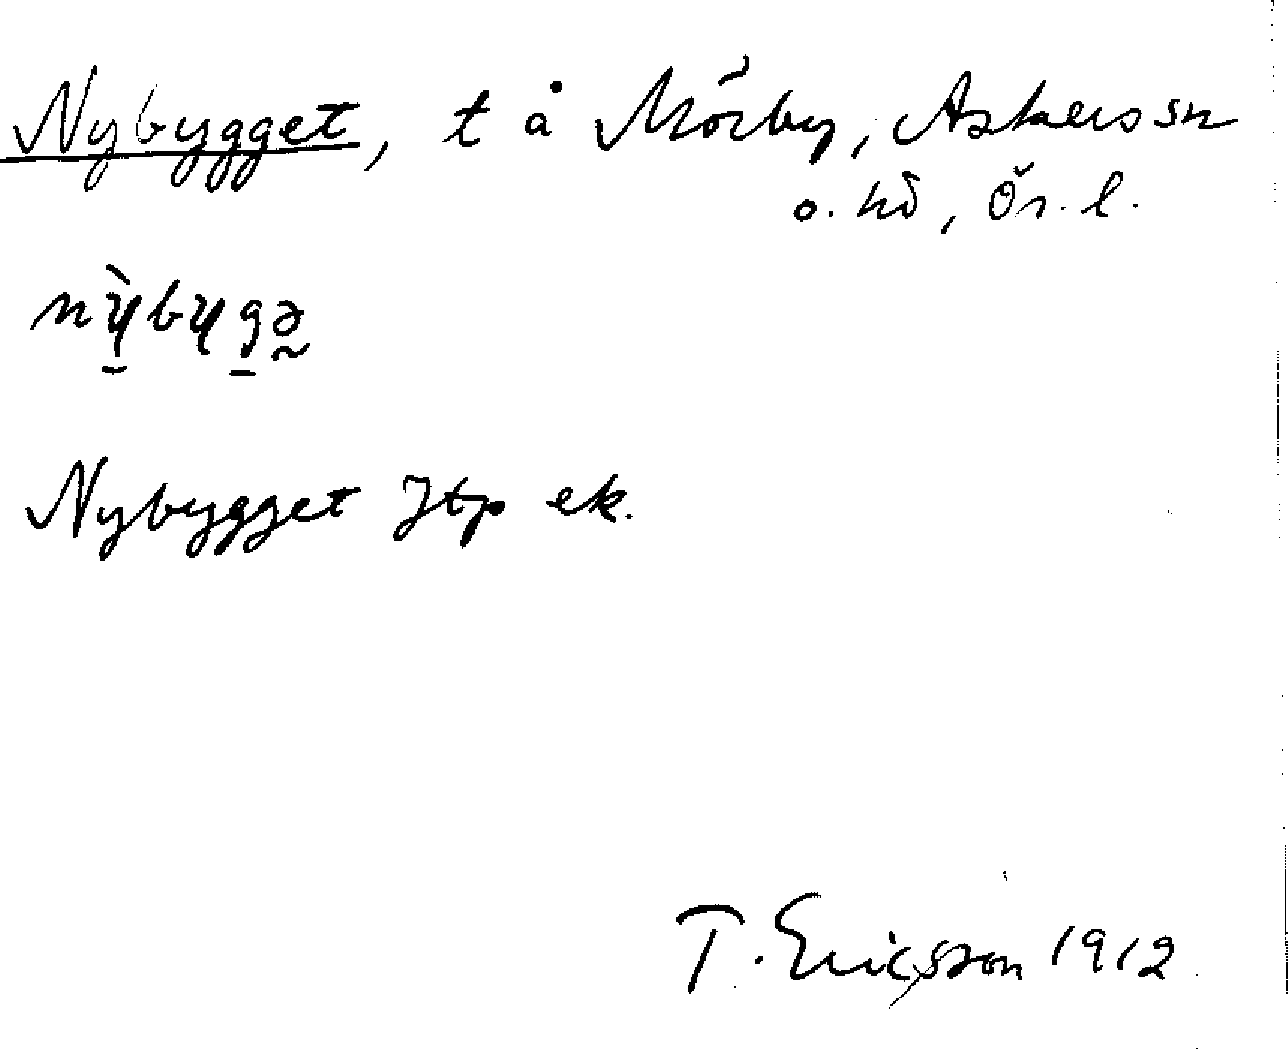 Nybygget, t å Mörby, Askers sn
o. hd, Ör. l.
nỳbygə
Nybygget Jtp ek.
T. Ericsson 1912